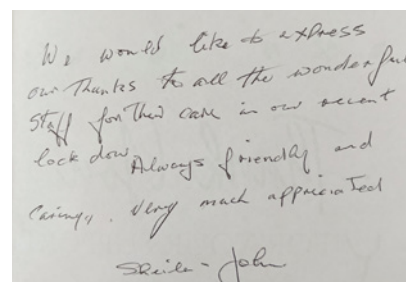 We would like to express
our Thanks to all the wonderful
staff for their care in our recent
lock down Always friendly and
caring,, . Very much appreciated
Sheila - John